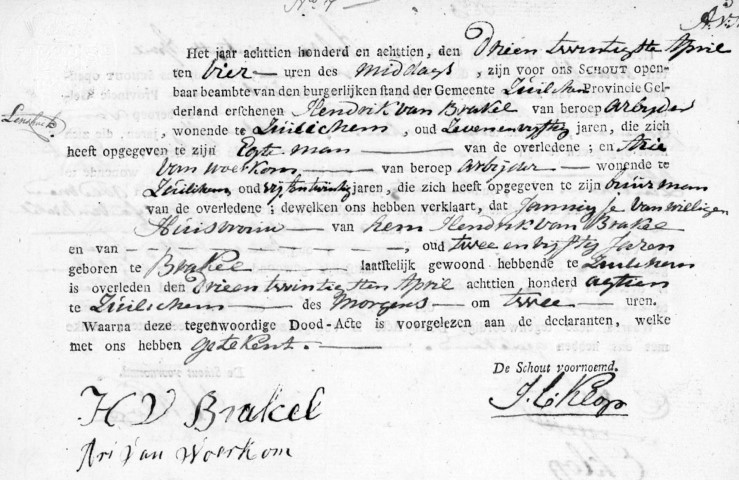 Het jaar achttien honderd en achttien, den Drieen twintigste April
ten vier uren des middags, zijn voor ons SCHOUT open-
baar beambte van den burgerlijken stand der Gemeente Zuilichem Provincie Gel-
derland erschenen Hendrik van Brakel van beroep Arbyder
, wonende te Zuilichem, oud Zevenenvyftig jaren, die zich
heeft opgegeven te zijn Egt man van de overledene; en Arie
van Woerkom van beroep Arbyder wonende te
Zuilichem oud vyfentwintig jaren, die zich heeft opgegeven te zijn buurman
van de overledene; dewelken ons hebben verklaart, dat Jannigje van Willigen
Huisvrouw van hem Hendrik van Brakel
en van - - - - - - - - - - , oud twee en vyftig Jaren
geboren te Brakel laatstelijk gewoond hebbende te Zuilichem
is overleden den Drieen twintigsten April achttien honderd agtien
te Zuilichem des Morgens om twee uren.
Waarna deze tegenwoordige Dood-Acte is voorgelezen aan de declaranten, welke
met ons hebben getekent.
De Schout voornoemd.
H V Brakel
Ari Van Woerkom